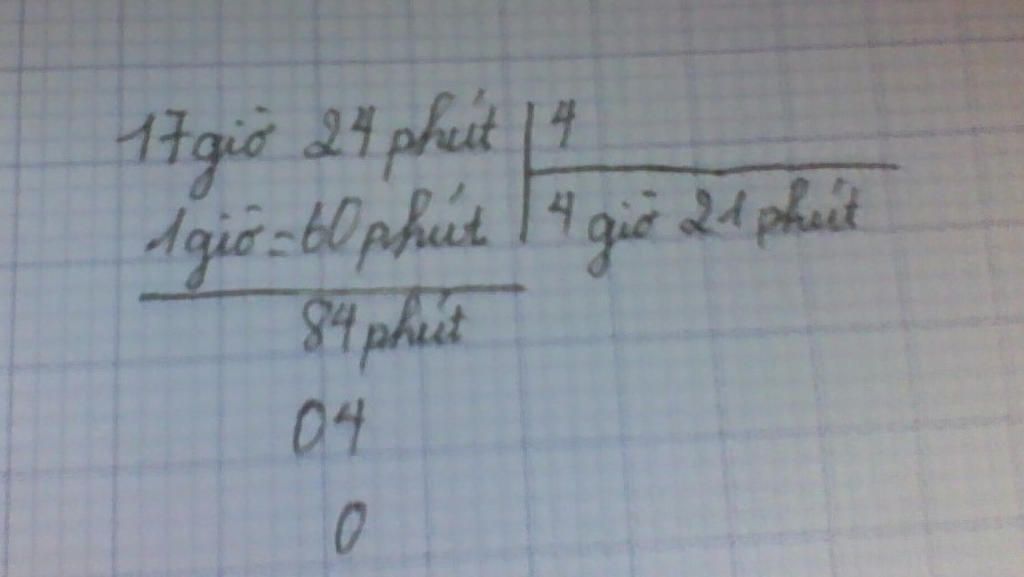 17 giờ 24 phút 4
1 giờ = 60 phút 4 giờ 21 phút
84 phút
04
0